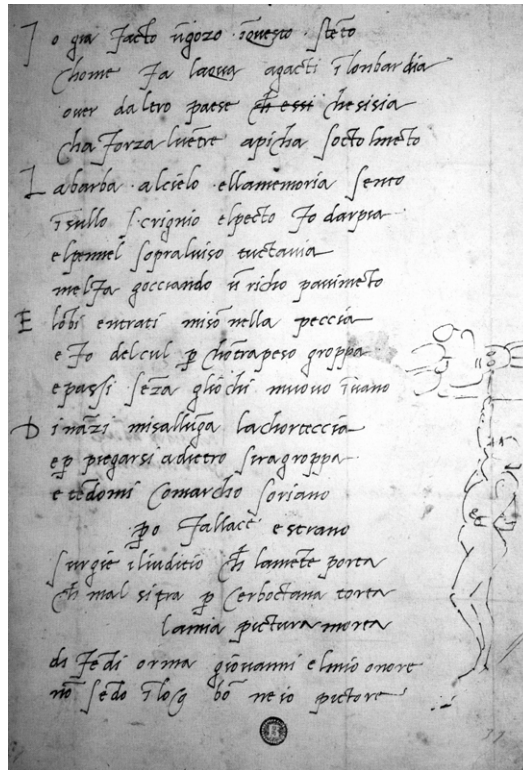 I o gia facto ūgozo īquesto stēto
chome fa laqua agacti īlonbardia
over daltro paese chessi che sisia
cha forza luētre apicha socto lmēto
L abarba alcielo ellamemoria sento
īsullo scrignio elpecto fo darpia
elpennel sopraluiso tuctauia
melfa gocciando ū richo pauimēto
E lōbi entrati misō nella peccia
e fo delcul p̄ chōtrapeso groppa
epassi sēza gliochi muouo īuano
D ināzi misallūga lachorteccia
e p̄ piegarsi adietro siragroppa
e tēdomi comarcho soriano
p̄o fallace e strano
surgie iliuditio ch̄ lamēte porta
ch̄ mal si tra p̄ cerboctana torta
lamia pictura morta
di fēdi orma giouanni elmio onore
nō sēdo īlog bō ne io pictore